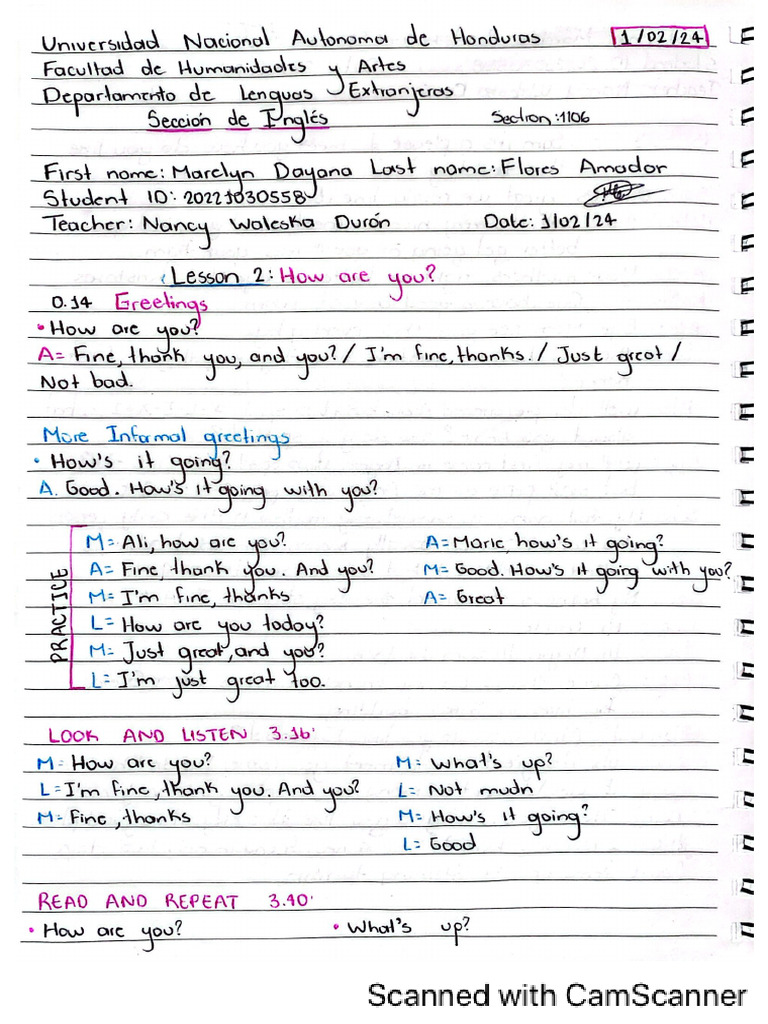 Universidad Nacional Autonoma de Honduras 1/02/24
Facultad de Humanidades y Artes
Departamento de Lenguas Extranjeras
Sección de Inglés Section:1106
First name: Marelyn Dayana Last name: Flores Amador
Student ID: 20221030558
Teacher: Nancy Waleska Durón Date: 1/02/24
Lesson 2: How are you?
0.14 Greetings
• How are you?
A= Fine, thank you, and you? / I'm fine, thanks. / Just great /
Not bad.
More Informal greetings
• How's it going?
A. Good. How's it going with you?
PRACTICE
M= Ali, how are you?
A= Fine, thank you. And you?
M= I'm fine, thanks
L= How are you today?
M= Just great, and you?
L= I'm just great too.
A= Marie, how's it going?
M= Good. How's it going with you?
A= Great
LOOK AND LISTEN 3.16
M= How are you?
L= I'm fine, thank you. And you?
M= Fine, thanks
M= What's up?
L= Not mudn
M= How's it going?
L= Good
READ AND REPEAT 3.40
• How are you? • What's up?
Scanned with CamScanner